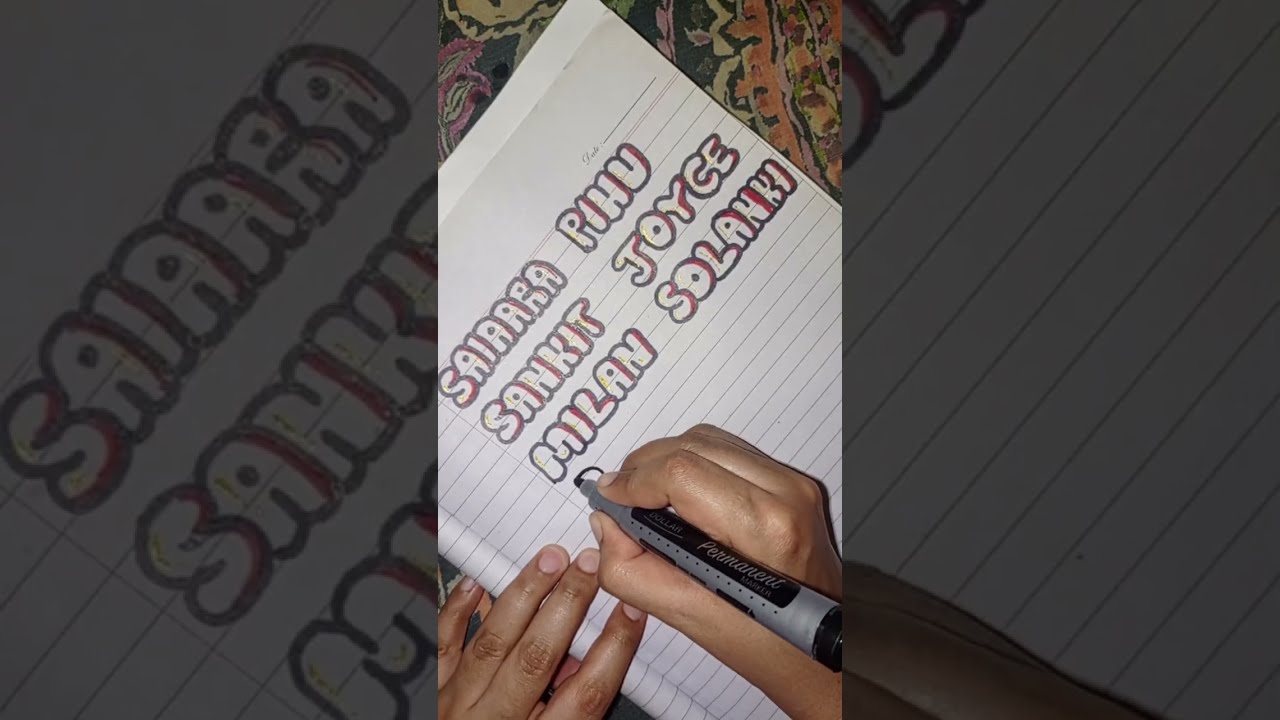 Date :
SAIARA PIHU
SANKIT JOYCE
MILAN SOLANKI
DOLLAR
Permanent
MARKER